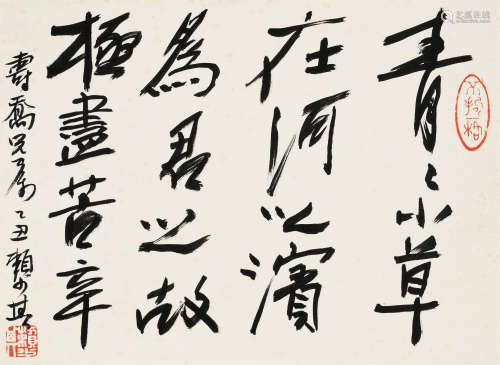 青〻小草
在河之濱
為君之故
極盡苦辛
壽喬兄屬 乙丑賴少其